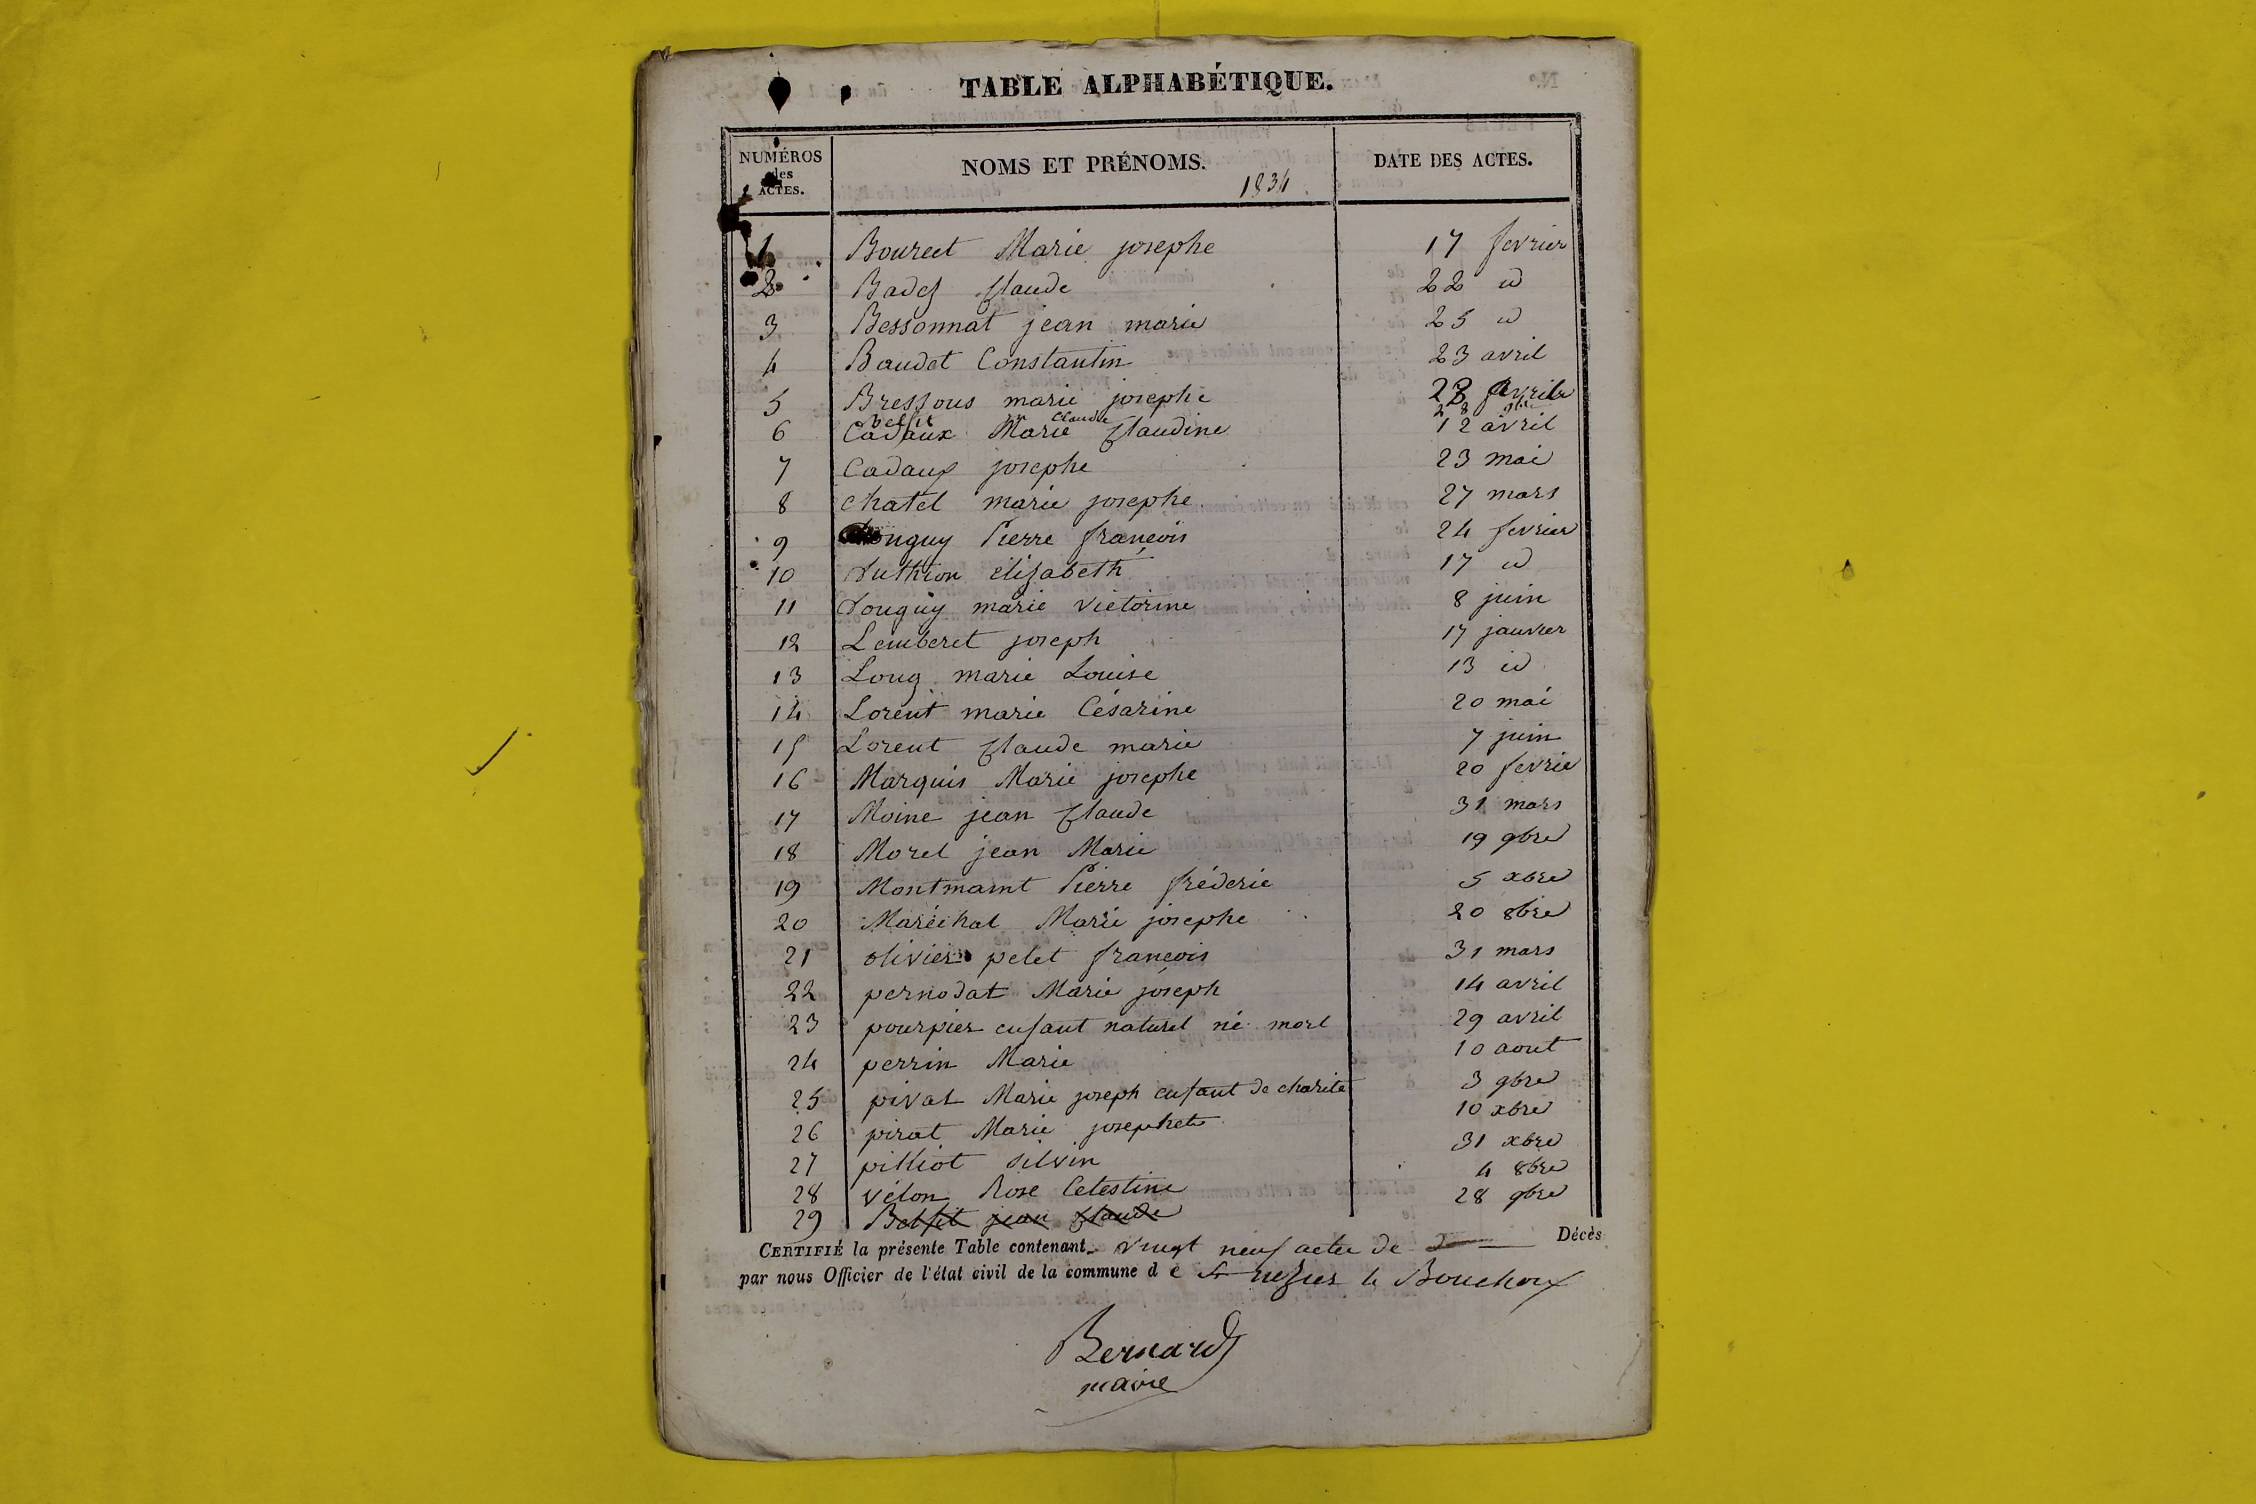 TABLE ALPHABÉTIQUE.
NUMÉROS des ACTES. NOMS ET PRÉNOMS. 1834 DATE DES ACTES.
1 Bourect Marie josephe 17 fevrier
2 Badez Claude 22 id
3 Bessonnat jean marie 25 id
4 Baudet Constantin 23 avril
5 Bressous marie josephe 28 avril
belfit jn Claude 28 9bre
6 Cadaux Marie Claudine 12 avril
7 Cadaux josephe 23 mai
8 chatel marie josephe 27 mars
9 Donguy Pierre françois 24 fevrier
10 duthion élizabeth 17 id
11 donguy marie victorine 8 juin
12 Lemberet joseph 17 janvier
13 Long marie Louise 13 id
14 Lorent marie Césarine 20 mai
15 Lorent Claude marie 7 juin
16 Marquis Marie josephe 20 fevrie
17 Moine jean Claude 31 mars
18 Morel jean Marie 19 9bre
19 Montmaint Pierre fréderic 5 xbre
20 Maréchal Marie josephe 20 8bre
21 olivier pelet francois 31 mars
22 pernodat Marie joseph 14 avril
23 pourpier enfant naturel né mort 29 avril
24 perrin Marie 10 aout
25 pivat Marie joseph enfant de charité 3 9bre
26 pirat Marie josephete 10 xbre
27 pilliot silvin 31 xbre
28 vélon Rose Celestine 4 8bre
29 Belfit jean Claude 28 9bre
CERTIFIÉ la présente Table contenant vingt neuf actes de Décès
par nous Officier de l'état civil de la commune d e le Bouchoux
Bernard
maire